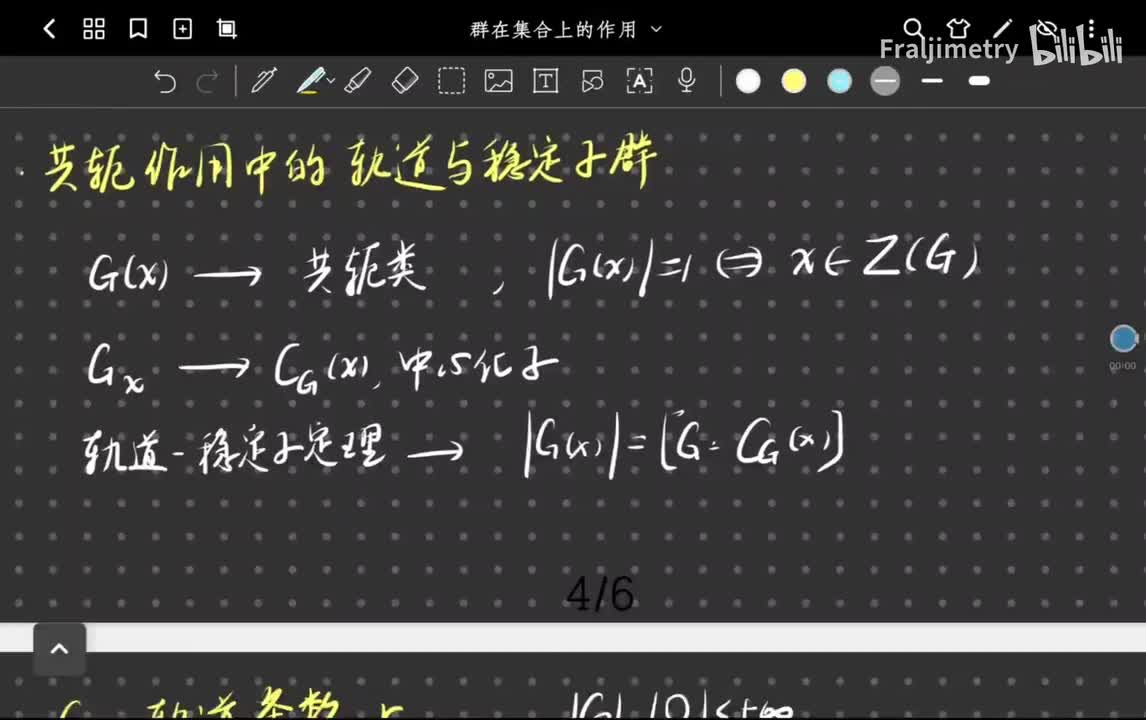 群在集合上的作用
Fraljimetry bilibili
共轭作用中的轨道与稳定子群
G(x) → 共轭类 , |G(x)|=1 ⇔ x∈Z(G)
Gₓ → C_G(x), 中心化子
轨道-稳定子定理 → |G(x)|=[G:C_G(x)]
00:00
4/6
轨道条数 r |G|,|Ω|<+∞